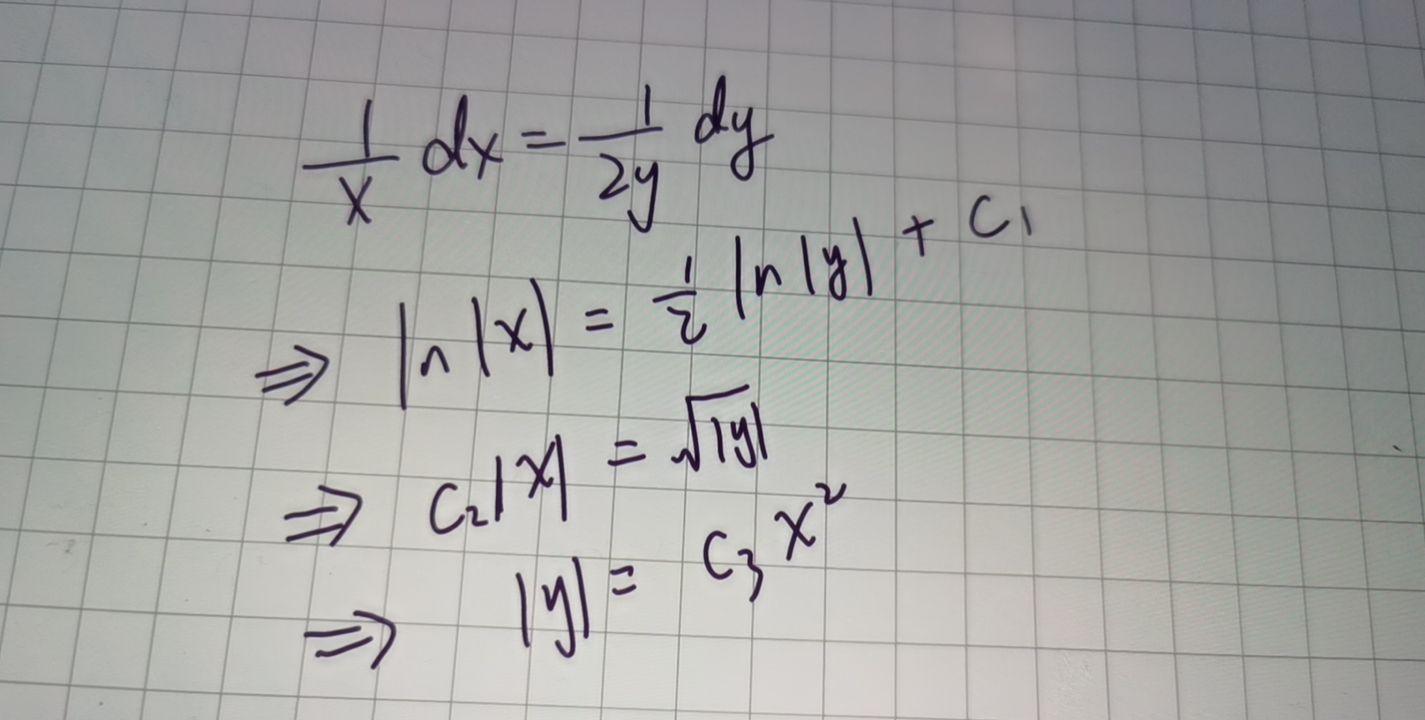 1/x dx = 1/2y dy
⇒ ln|x| = 1/2 ln|y| + C₁
⇒ C₂|x| = √|y|
⇒ |y| = C₃x²